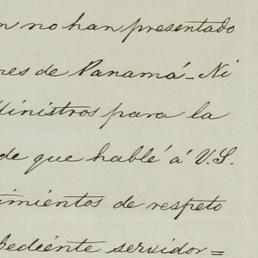 n no han presentado
res de Panamá_ Ni
Ministros para la
de que hablé á V.S.
timientos de respeto
bediente servidor=